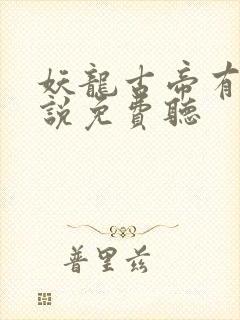 妖龍古帝有
說免費聽
普里兹